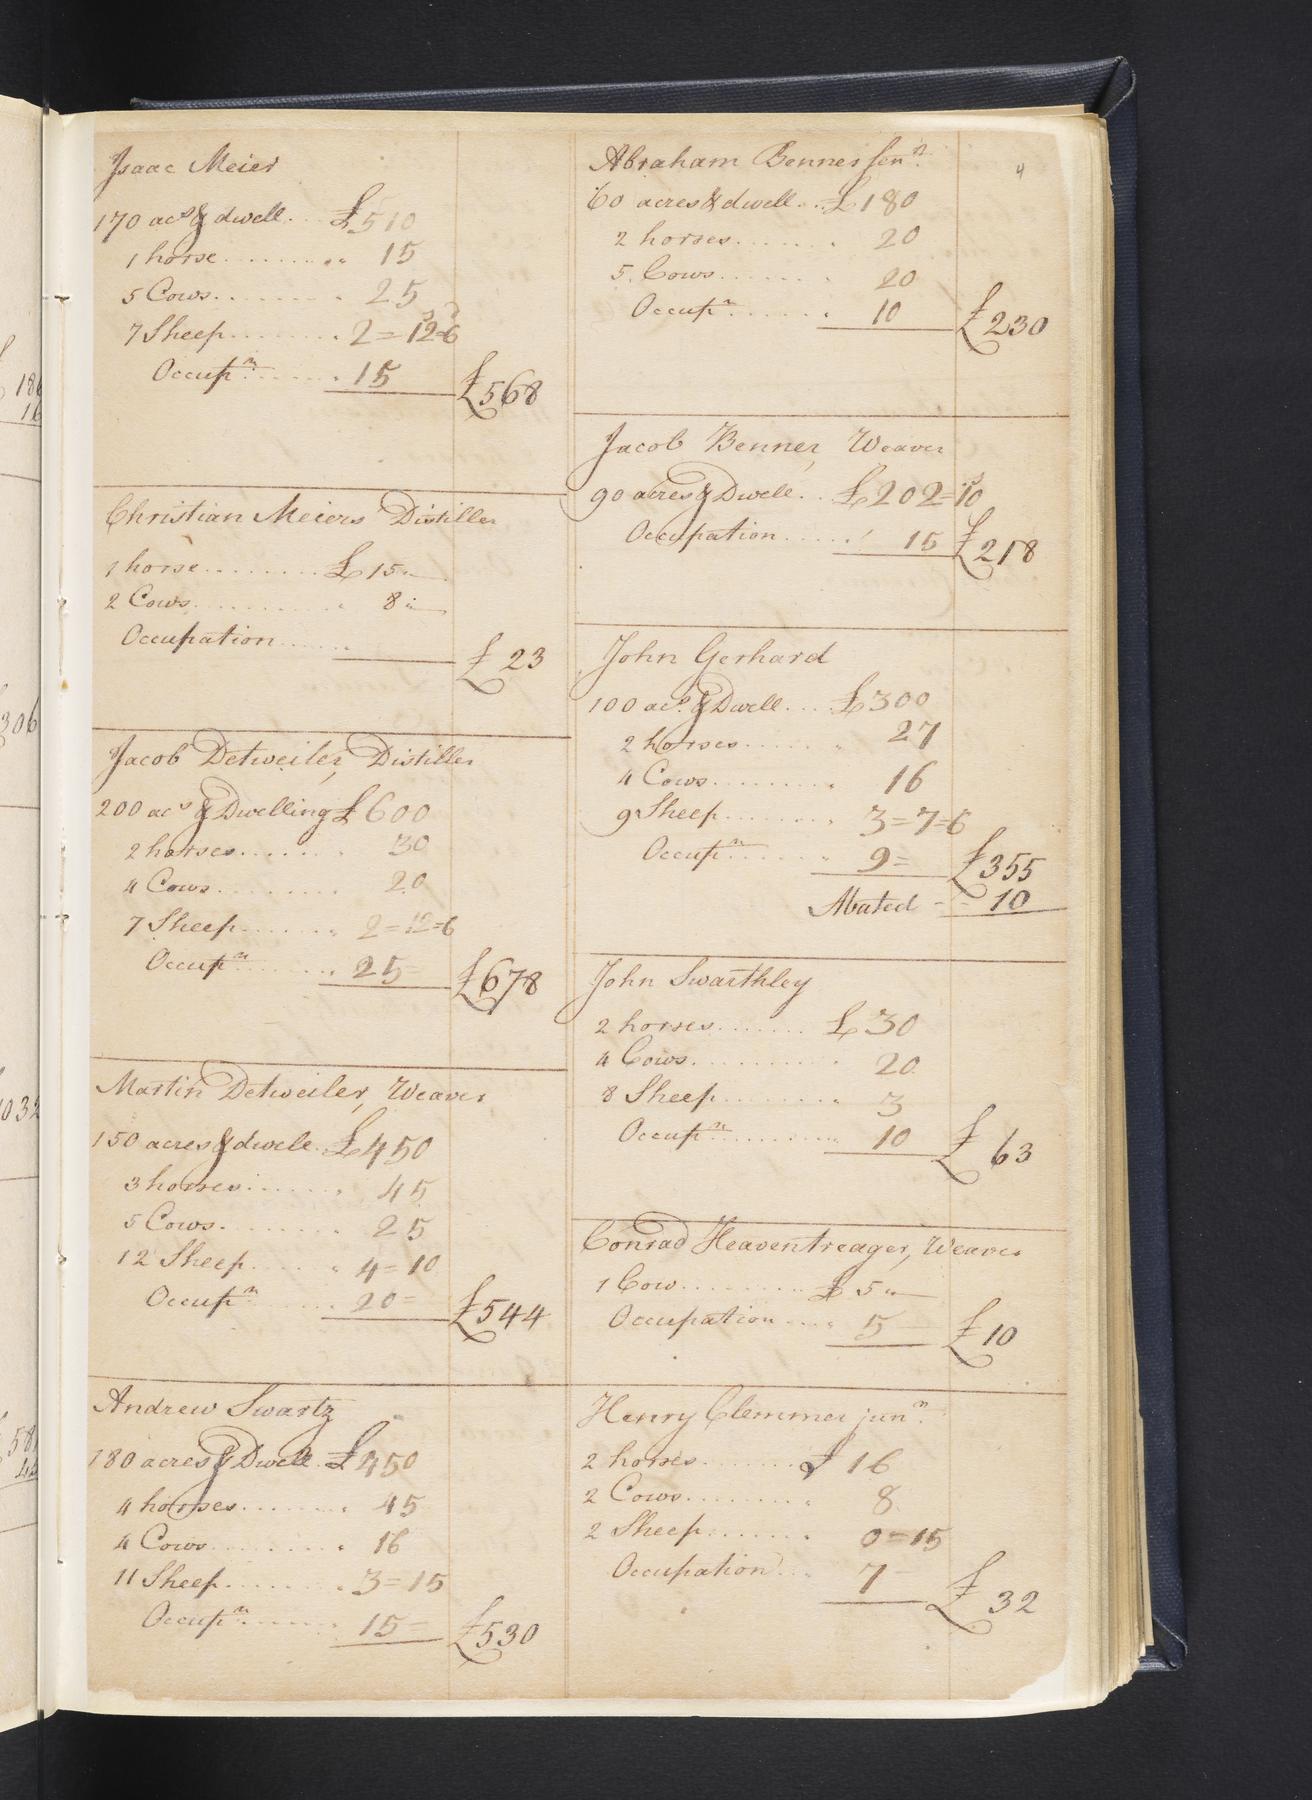 Isaac Meier
170 acs & dwell. £510
1 horse.......... 15
5 Cows........ 25
7 Sheep........ 2=12=6
Occupn....... 15 £568
Christian Meiers Distiller
1 horse......... £15"
2 Cows.......... 8"
Occupation......
£ 23
Jacob Detweiler, Distiller
200 acs & Dwelling £600
2 horses........ 30
4 Cows......... 20
7 Sheep........ 2=12=6
Occupn....... 25= £678
Martin Detweiler, Weaver
150 acres & dwell. £450
3 horses....... 45
5 Cows......... 25
12 Sheep....... 4=10
Occupn....... 20= £544
Andrew Swartz
180 acres & Dwell. £450
4 horses........ 45
4 Cows......... 16
11 Sheep........ 3=15
Occupn....... 15= £530
4
Abraham Benner senr.
60 acres & dwell... £180
2 horses........ 20
5 Cows........ 20
Occupn....... 10 £230
Jacob Benner, Weaver
90 acres & Dwell... £202=10
Occupation...... 15 £218
John Gerhard
100 acs. & Dwell.... £300
2 horses....... 27
4 Cows......... 16
9 Sheep........ 3=7=6
Occupn....... 9= £355
Abated - - 10
John Swarthley
2 horses....... £30
4 Cows.......... 20
8 Sheep........ 3
Occupn......... 10 £ 63
Conrad Heaventreager, Weaver
1 Cow......... £ 5"
Occupation.... 5 £10
Henry Clemmer junr.
2 horses....... £ 16
2 Cows......... 8
2 Sheep....... 0=15
Occupation... 7 £ 32